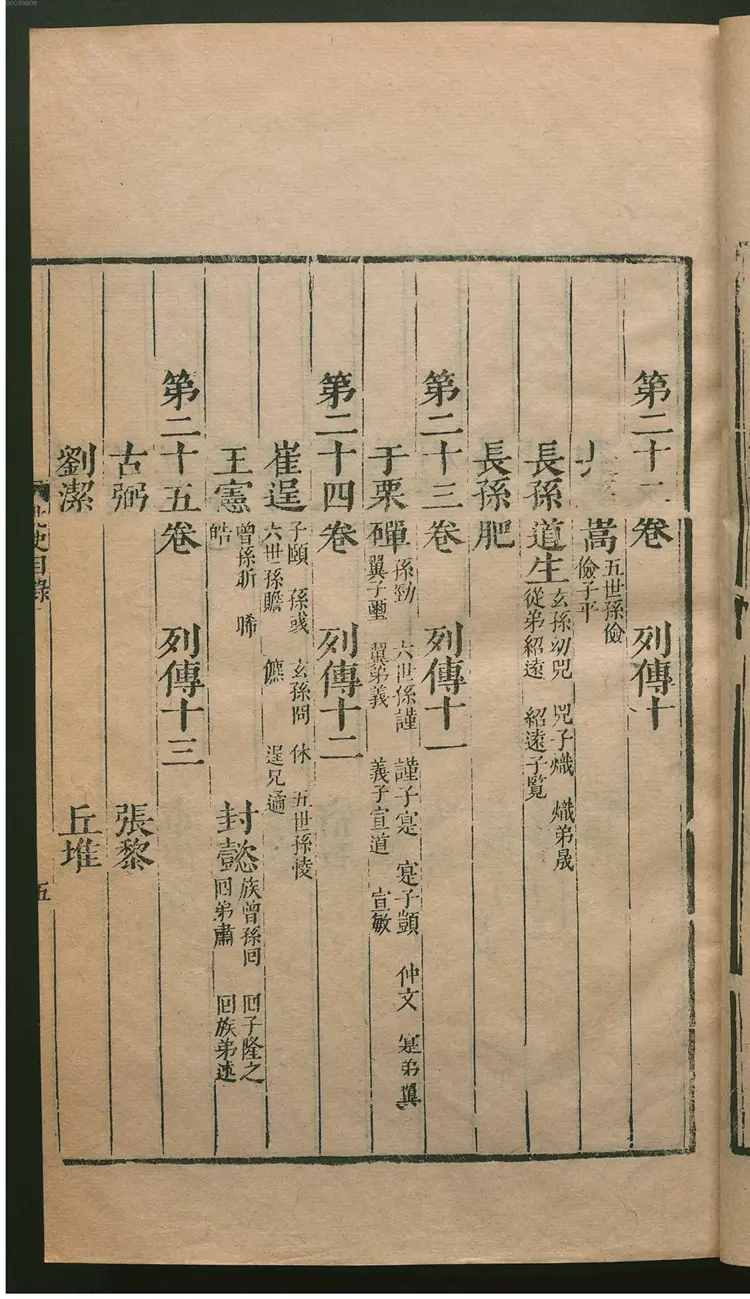 第二十二卷 列傳十
嵩 五世孫儉 儉子平
長孫道生 玄孫幼 兕 兕子熾 熾弟晟 從弟紹遠 紹遠子覽
長孫肥
第二十三卷 列傳十一
于栗磾 孫勁 六世孫謹 謹子寔 寔子顗 仲文 寔弟翼 翼子璽 翼弟義 義子宣道 宣敏
第二十四卷 列傳十二
崔逞 子頤 孫彧 玄孫冏 休 五世孫㥄 六世孫贍 儦 逞兄遹
王憲 曾孫昕 晞 皓 封懿 族曾孫回 回子隆之 回弟肅 回族弟述
第二十五卷 列傳十三
古弼 張黎
劉潔 丘堆
史目錄
五
00059606